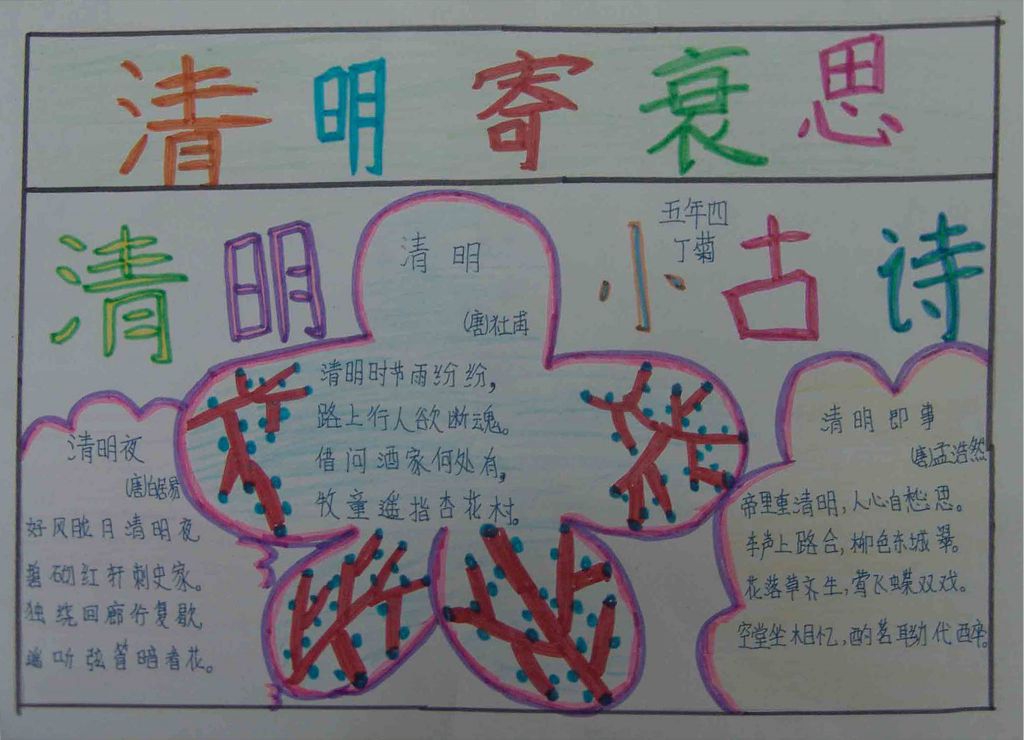 清明寄衰思
清明小古诗
五年四
丁菊
清明
(唐)杜甫
清明时节雨纷纷，
路上行人欲断魂。
借问酒家何处有，
牧童遥指杏花村。
清明夜
(唐)白居易
好风胧月清明夜
碧砌红轩刺史家。
独绕回廊行复歇
遥听弦管暗看花。
清明即事
(唐)孟浩然
帝里重清明，人心自愁思。
车声上路合，柳色东城翠。
花落草齐生，莺飞蝶双戏。
空堂坐相忆，酌茗聊代醉。